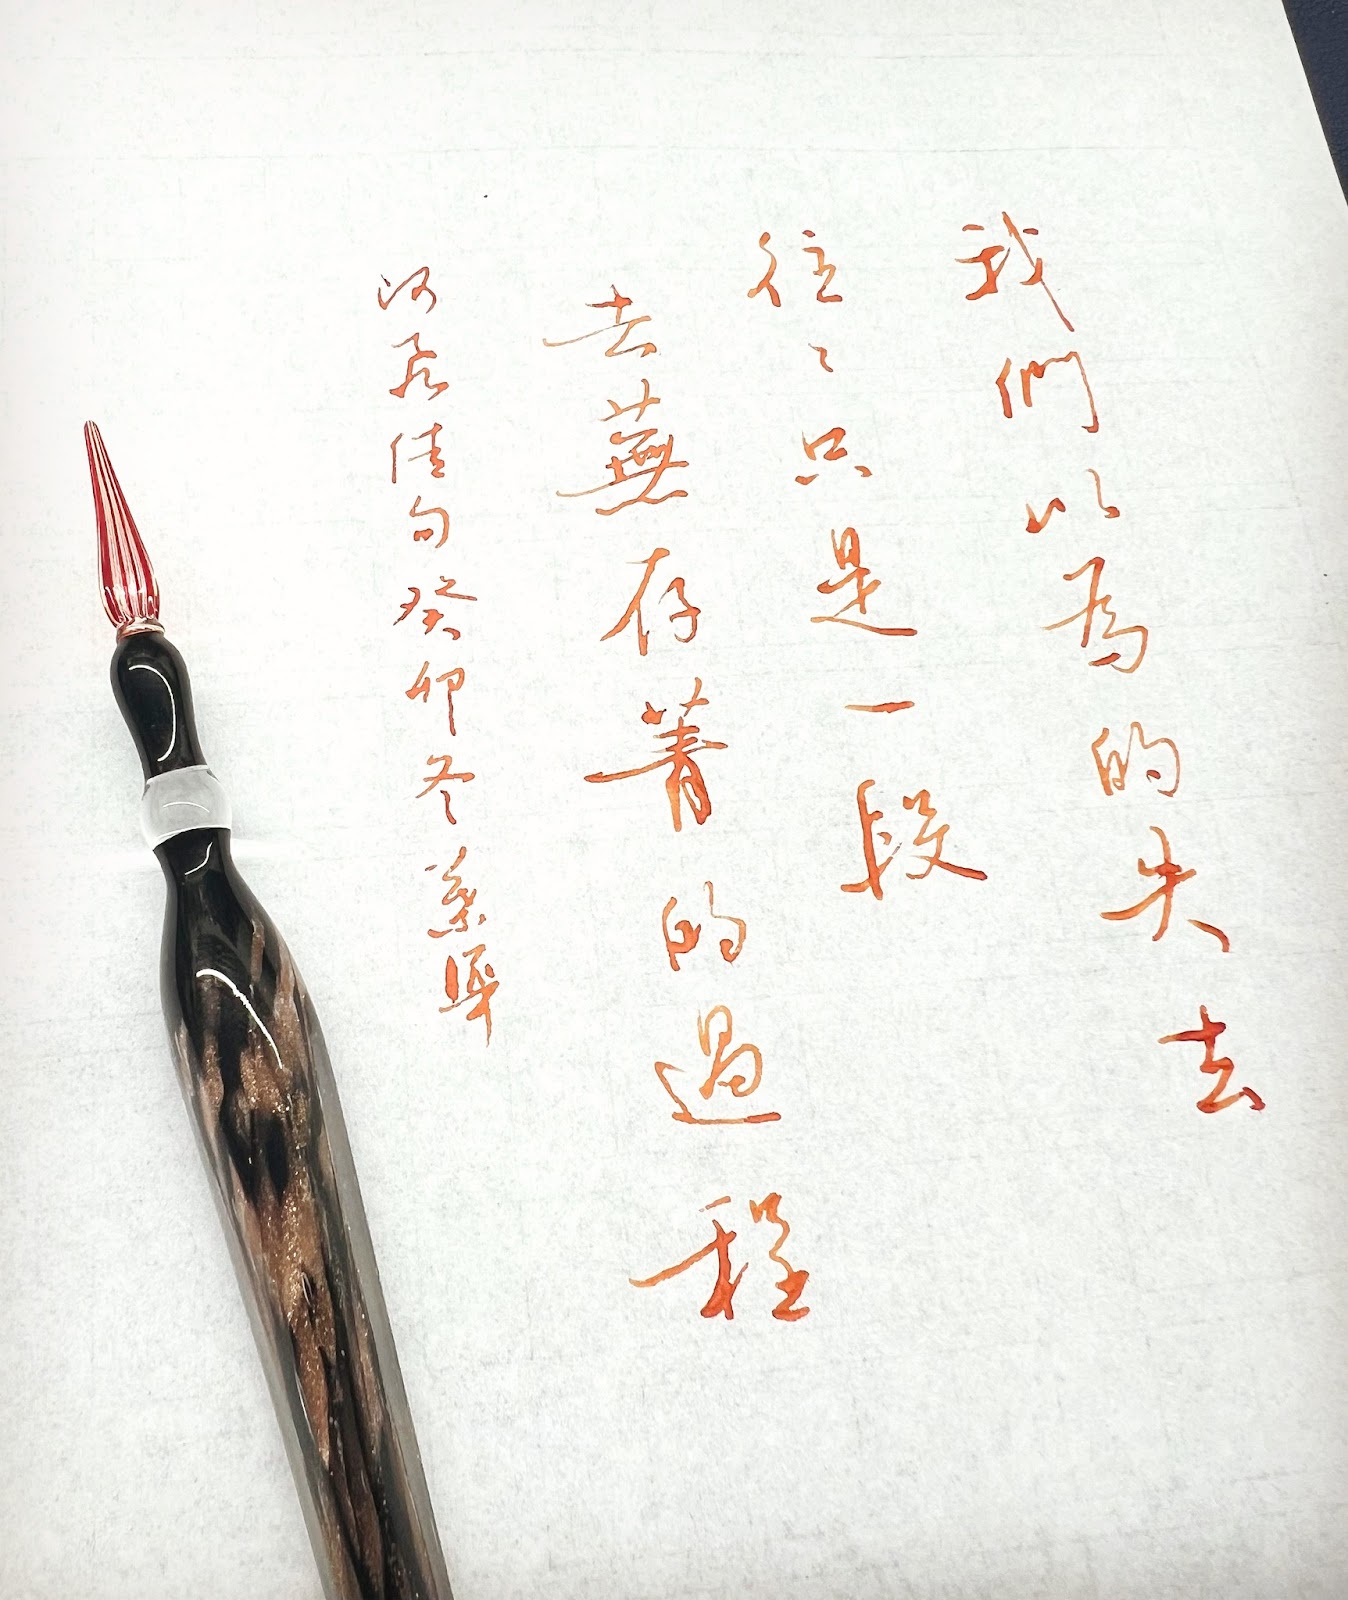 我們以為的失去
往々只是一段
去蕪存菁的過程
佳句癸卯冬葉曄